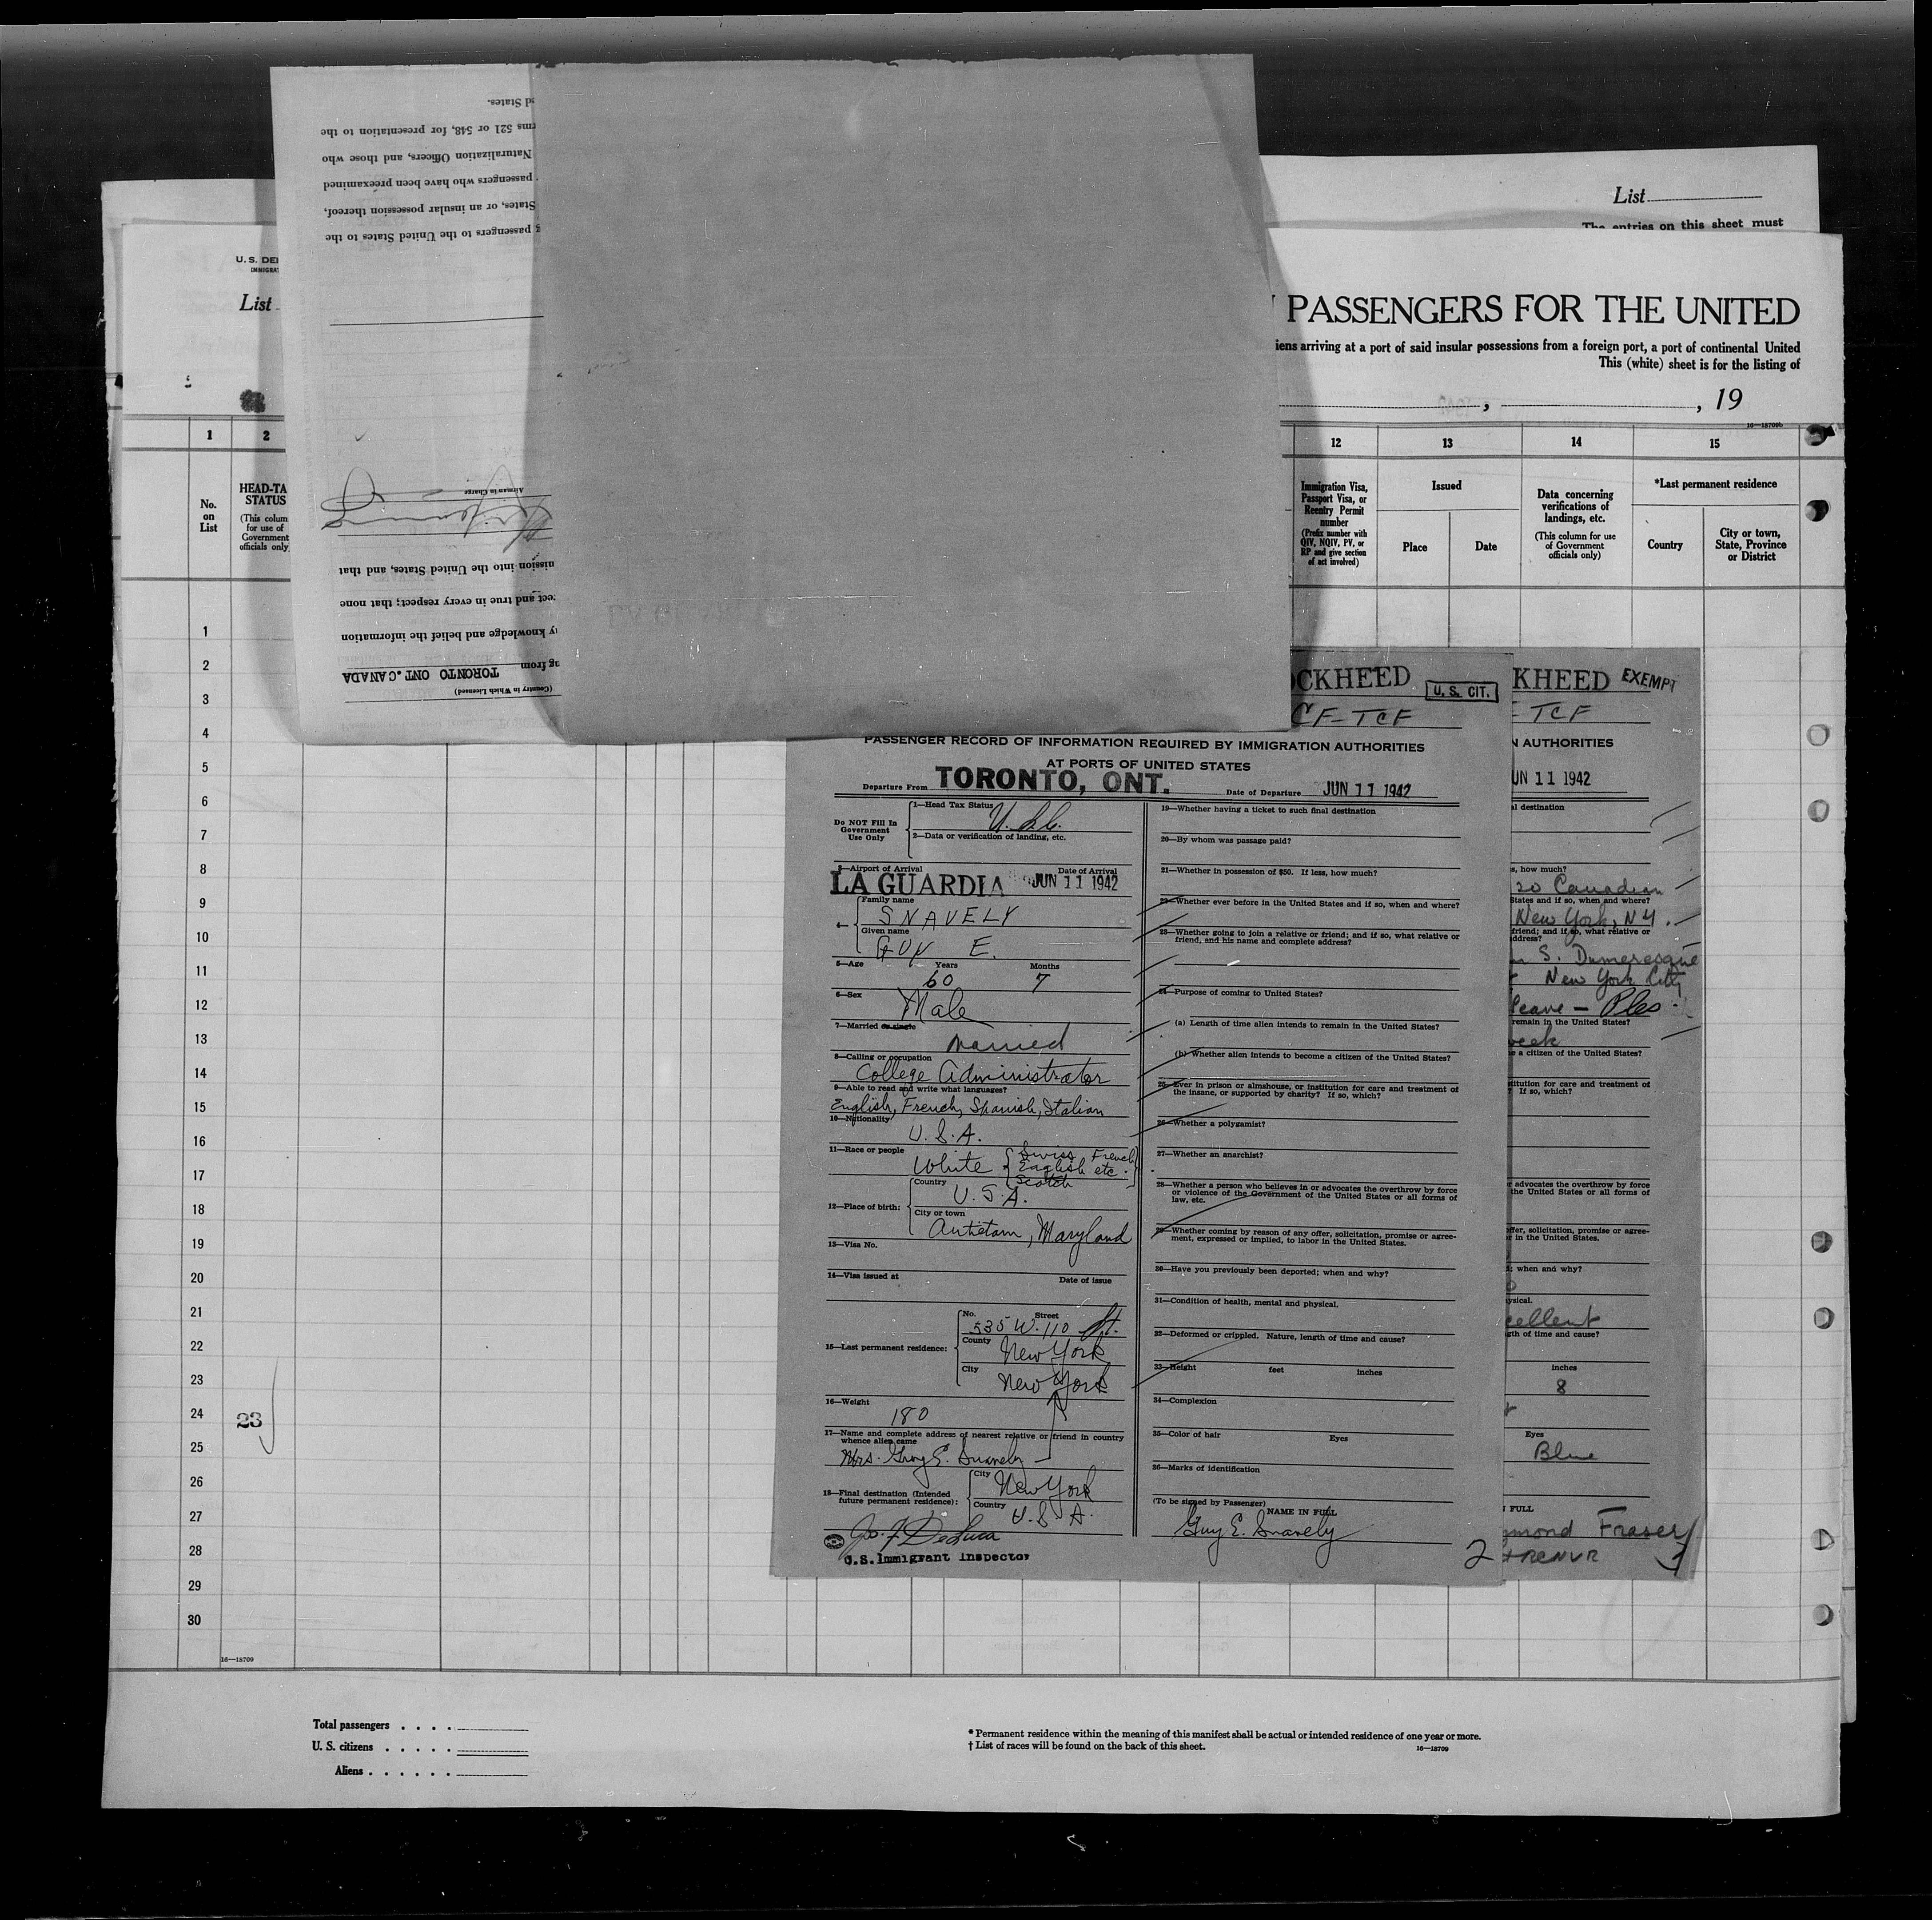 d States.
rms 521 or 548, for presentation to the
Naturalization Officers, and those who
passengers who have been preexamined
States, or an insular possession thereof,
g passengers to the United States to the
Airman in Charge
mission into the United States, and that
ect and true in every respect; that none
y knowledge and belief the information
ng from TORONTO ONT. CANADA
(Country in Which Licensed)
List
The entries on this sheet must
U. S. DE
IMMIGRAT
List
PASSENGERS FOR THE UNITED
iens arriving at a port of said insular possessions from a foreign port, a port of continental United
This (white) sheet is for the listing of
, , 19
16—18709b
1 2 12 13 14 15
No. on List
HEAD-TA
STATUS
(This colum
for use of
Government
officials only
Immigration Visa,
Passport Visa, or
Reentry Permit
number
(Prefix number with
QIV, NQIV, PV, or
RP and give section
of act involved)
Issued
Place Date
Data concerning
verifications of
landings, etc.
(This column for use
of Government
officials only)
*Last permanent residence
Country
City or town,
State, Province
or District
1
2
3
4
5
6
7
8
9
10
11
12
13
14
15
16
17
18
19
20
21
22
23
24
25
26
27
28
29
30
23
16—18709
OCKHEED U. S. CIT.
CF-TCF
PASSENGER RECORD OF INFORMATION REQUIRED BY IMMIGRATION AUTHORITIES
AT PORTS OF UNITED STATES
Departure From TORONTO, ONT. Date of Departure JUN 11 1942
Do NOT Fill In
Government
Use Only
1—Head Tax Status
2—Data or verification of landing, etc.
3—Airport of Arrival Date of Arrival
LA GUARDIA JUN 11 1942
4— Family name
SNAVELY
Given name
GUY E.
5—Age Years Months
60 7
6—Sex Male
7—Married or single
Married
8—Calling or occupation
College Administrator
9—Able to read and write what languages?
English, French, Spanish, Italian
10—Nationality
U.S.A.
11—Race or people White { Swiss, French
English etc.
Scotch
12—Place of birth: Country U.S.A.
City or town
Antietam, Maryland
13—Visa No.
14—Visa issued at Date of issue
15—Last permanent residence:
No. Street
535 W. 110 St.
County New York
City New York
16—Weight
180
17—Name and complete address of nearest relative or friend in country
whence alien came
Mrs. Guy E. Snavely
18—Final destination (Intended
future permanent residence):
City New York
Country U.S.A.
Jos. F. DeLuca
U.S. Immigrant Inspector
19—Whether having a ticket to such final destination
20—By whom was passage paid?
21—Whether in possession of $50. If less, how much?
22—Whether ever before in the United States and if so, when and where?
23—Whether going to join a relative or friend; and if so, what relative or
friend, and his name and complete address?
24—Purpose of coming to United States?
(a) Length of time alien intends to remain in the United States?
(b) Whether alien intends to become a citizen of the United States?
25—Ever in prison or almshouse, or institution for care and treatment of
the insane, or supported by charity? If so, which?
26—Whether a polygamist?
27—Whether an anarchist?
28—Whether a person who believes in or advocates the overthrow by force
or violence of the Government of the United States or all forms of
law, etc.
29—Whether coming by reason of any offer, solicitation, promise or agree-
ment, expressed or implied, to labor in the United States.
30—Have you previously been deported; when and why?
31—Condition of health, mental and physical.
32—Deformed or crippled. Nature, length of time and cause?
33—Height feet inches
34—Complexion
35—Color of hair Eyes
36—Marks of identification
(To be signed by Passenger) NAME IN FULL
Guy E. Snavely
2
KHEED EXEMPT
- TCF
N AUTHORITIES
UN 11 1942
al destination
s, how much?
20 Canadian
States and if so, when and where?
New York, N.Y.
friend; and if so, what relative or
address?
S. Dumeresque
New York City
leave —
remain in the United States?
week
e a citizen of the United States?
stitution for care and treatment of
? If so, which?
r advocates the overthrow by force
the United States or all forms of
ffer, solicitation, promise or agree-
r in the United States.
; when and why?
ysical.
cellent
gth of time and cause?
inches
8
Eyes
Blue
N FULL
mond Fraser
RCNVR
1
Total passengers . . . .
U. S. citizens . . . . .
Aliens . . . . . .
* Permanent residence within the meaning of this manifest shall be actual or intended residence of one year or more.
† List of races will be found on the back of this sheet.
16—18709